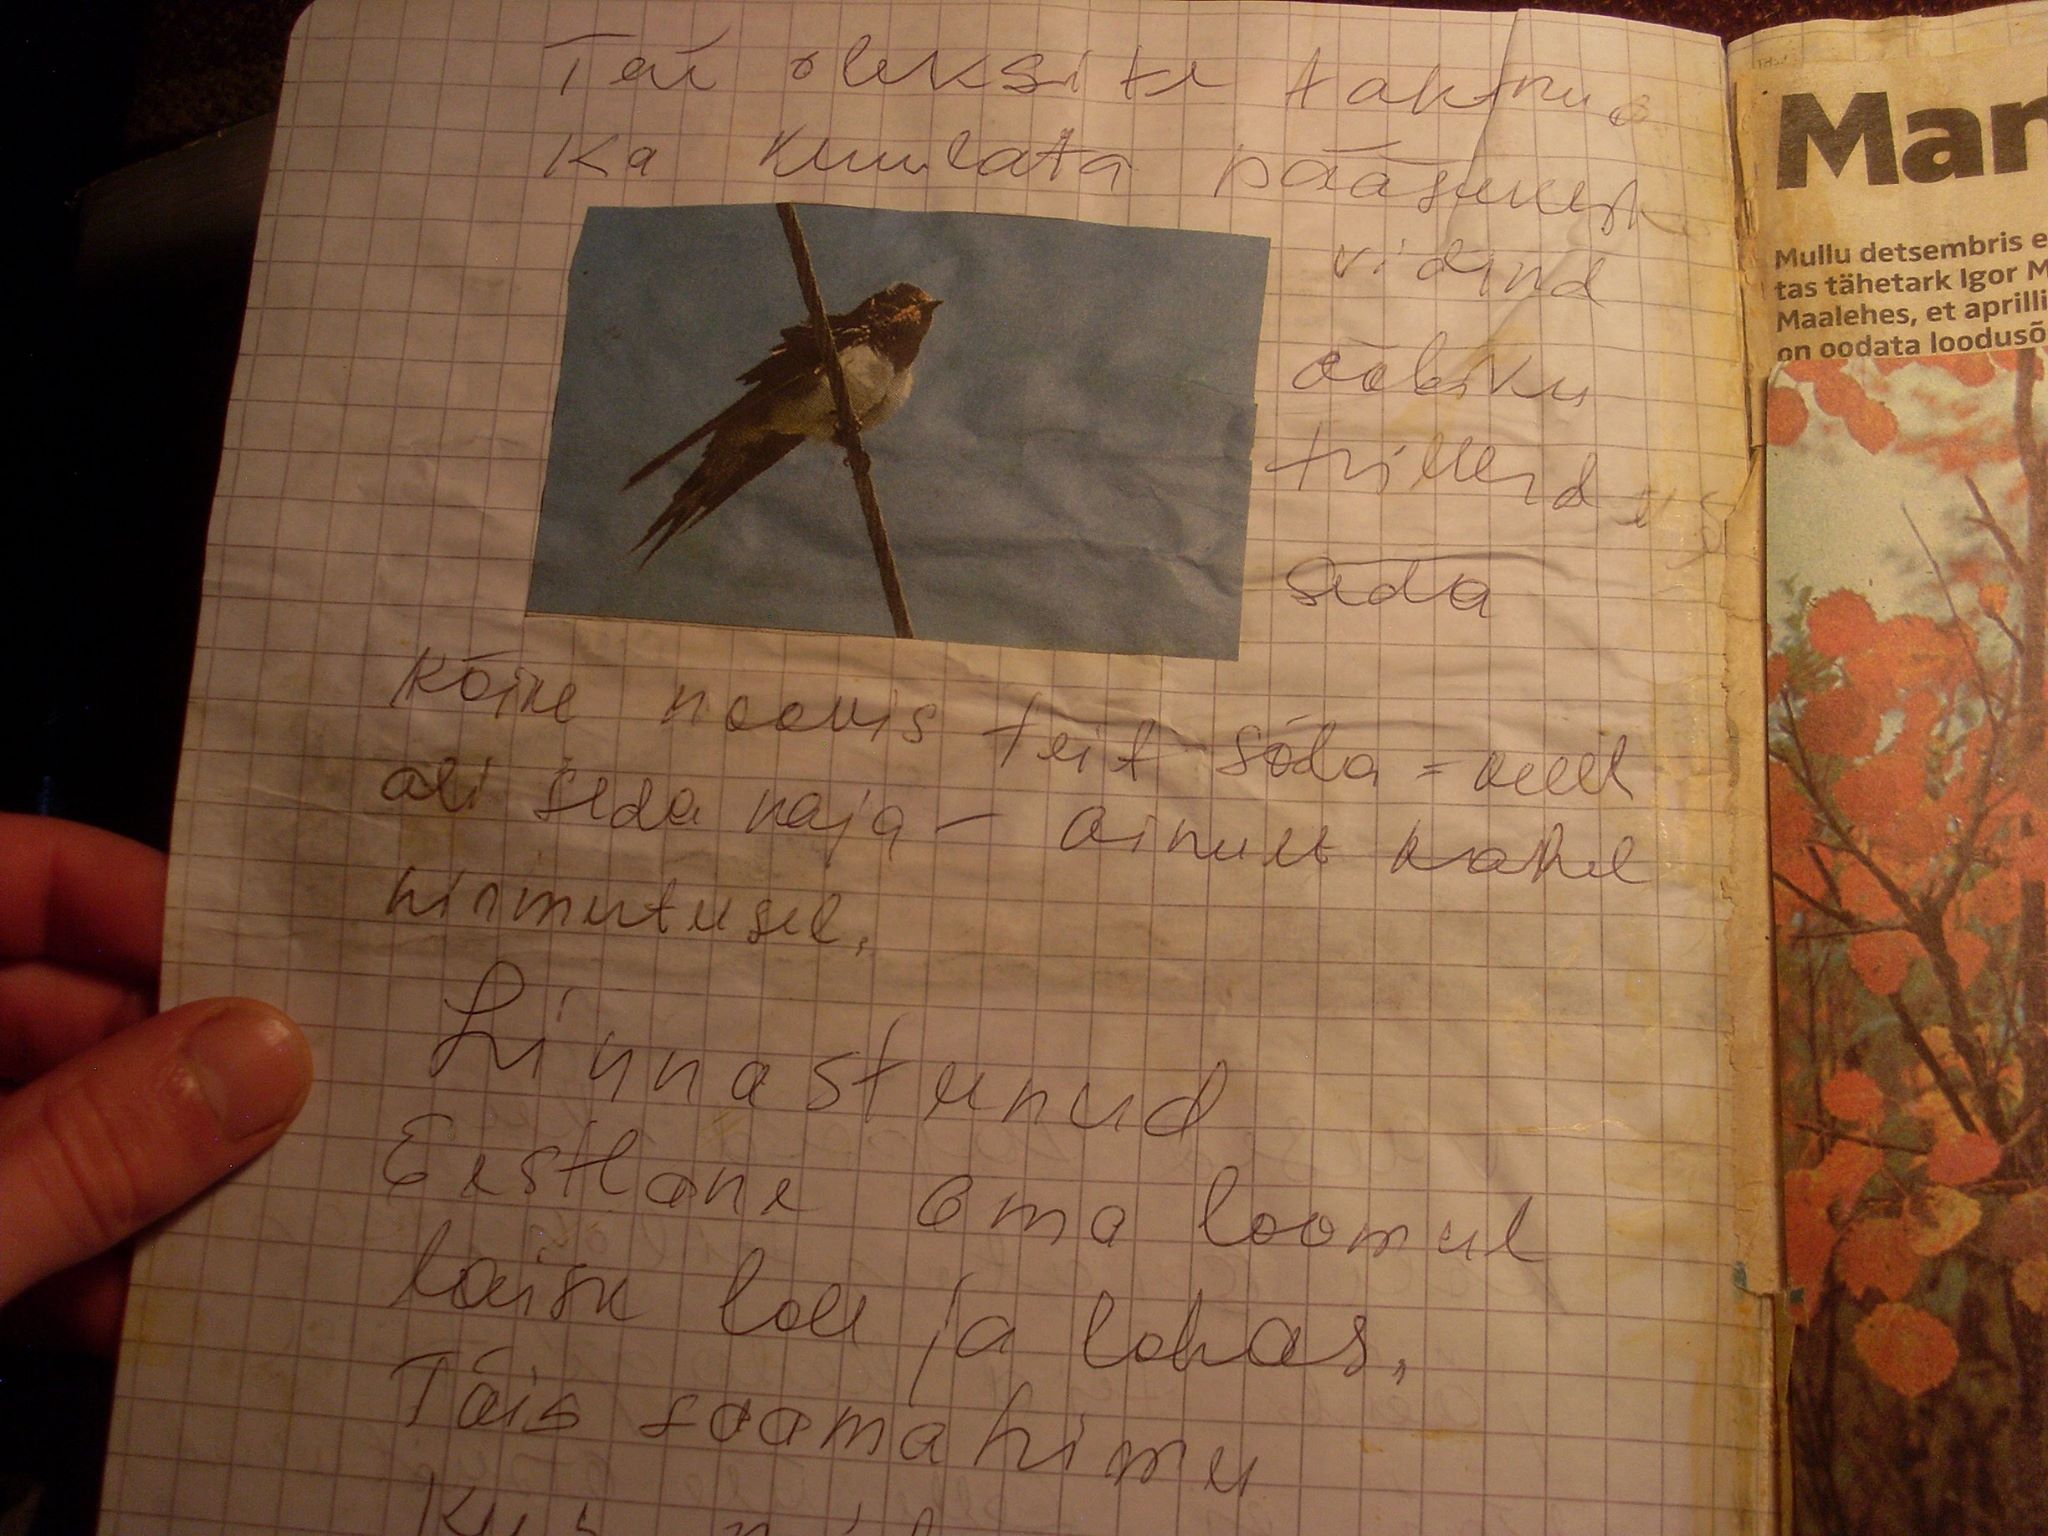 Tei oleksite tahtnud
Ka kuulata pääsukest
vidind
ööbiku
trillerd
seda
Kõike noovis teit sõda = veel
oli seda naja - ainult kahel
hinmutusel.
Linnastunud
Eestlane oma loomul
laisk loll ja lohas,
Täis saamahimu
Man
Mullu detsembris e
tas tähetark Igor M
Maalehes, et aprilli
on oodata loodusõ